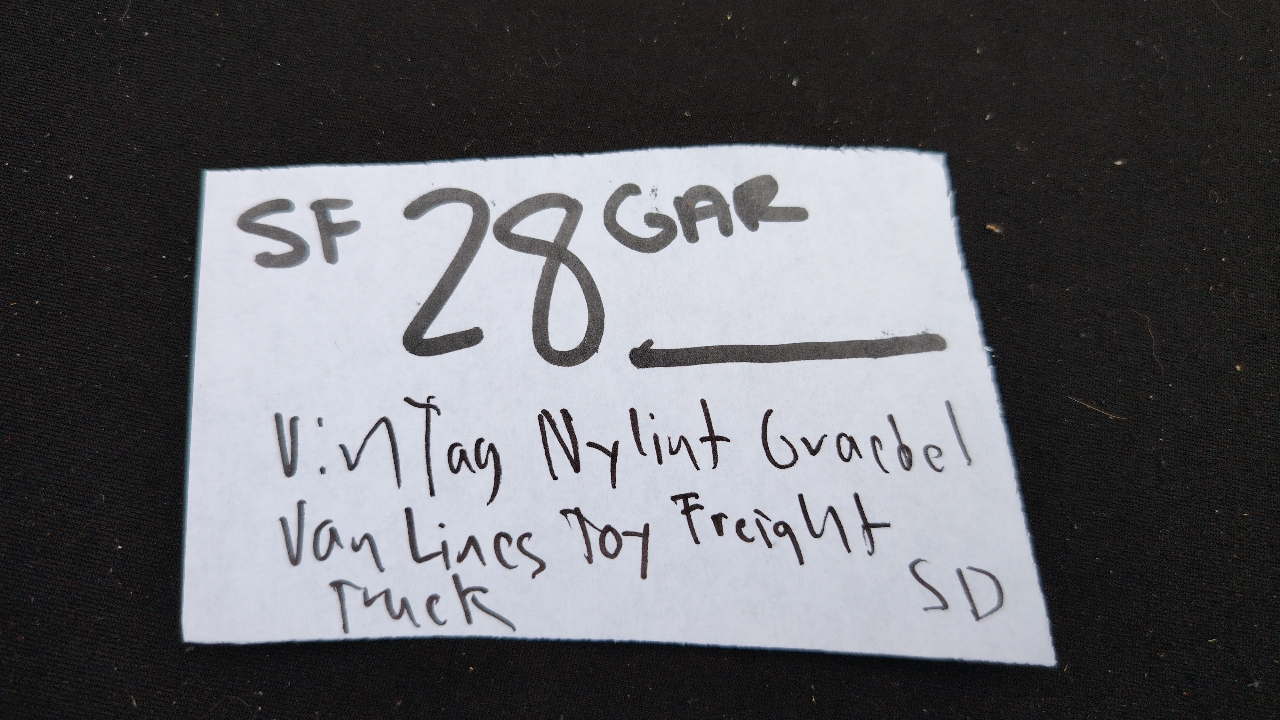 SF 28 GAR
VinTag Nylint Graebel
Van Lines Toy Freight
Truck SD